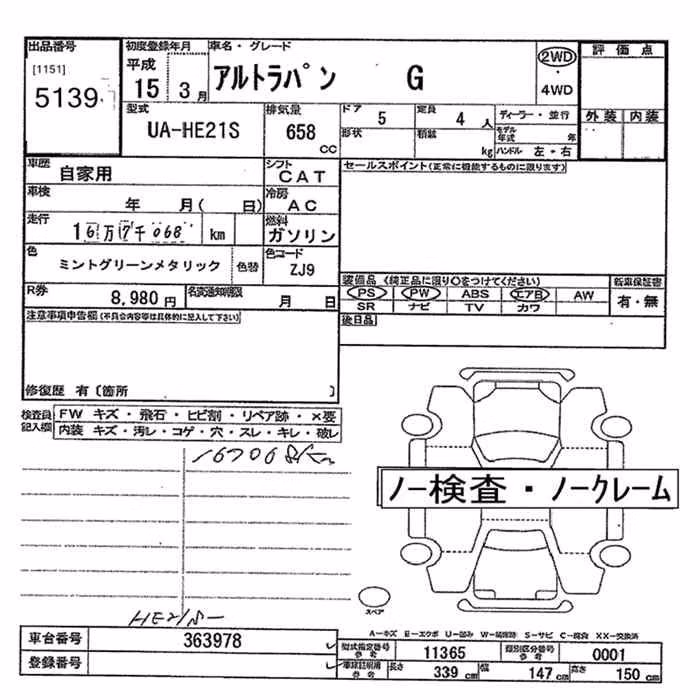 出品番号 初度登録年月 車名・グレード 評価点
[1151] 5139 平成 15 3月 アルトラパン G 2WD 4WD
型式 排気量 ドア 5 定員 4人 ディーラー・並行 外装 内装
UA-HE21S 658 cc 形状 積載 kg モデル年式 年 ハンドル 左・右
車歴 自家用 シフト CAT セールスポイント(正常に機能するものに限ります)
車検 年 月( 日) 冷房 AC
走行 16万7千068 km 燃料 ガソリン
色 ミントグリーンメタリック 色替 色コード ZJ9
装備品(純正品に限り○をつけてください) 新車保証書
R券 8,980円 名変通知期限 月 日 PS PW ABS エアB AW 有・無
SR ナビ TV カワ
注意事項申告欄(不具合内容等は具体的に記入して下さい) 後日品
修復歴 有〔箇所 〕
検査員記入欄 FW キズ・飛石・ヒビ割・リペア跡・×要
内装 キズ・汚レ・コゲ・穴・スレ・キレ・破レ
167068km
ノー検査・ノークレーム
スペア
HE21S-
A-キズ E-エクボ U-凹み W-補修跡 S-サビ C-腐食 XX-交換済
車台番号 363978 型式指定番号 参考 11365 類別区分番号 参考 0001
登録番号 車庫証明用 参考 長さ 339 cm 幅 147 cm 高さ 150 cm